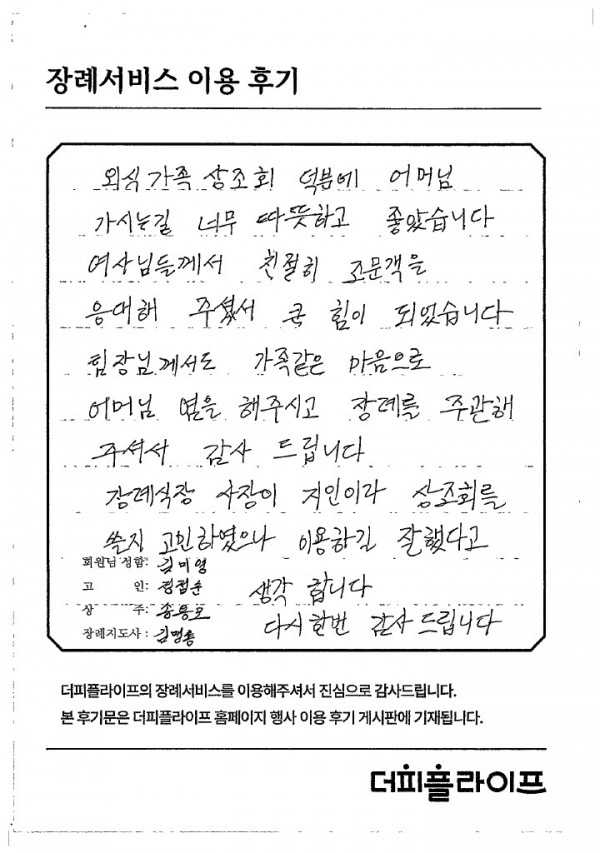 장례서비스 이용 후기
외식가족 상조회 덕분에 어머님
가시는길 너무 따뜻하고 좋았습니다
여사님들께서 친절히 조문객을
응대해 주셨서 큰 힘이 되었습니다
팀장님께서도 가족같은 마음으로
어머님 염을 해주시고 장례를 주관해
주셔서 감사 드립니다
장례식장 사장이 지인이라 상조회를
쓸지 고민하였으나 이용하길 잘했다고
회원님 성함: 김미영
고 인: 정점순
생각 합니다
상 주: 송용호
장례지도사: 김명종
다시한번 감사드립니다
더피플라이프의 장례서비스를 이용해주셔서 진심으로 감사드립니다.
본 후기문은 더피플라이프 홈페이지 행사 이용 후기 게시판에 기재됩니다.
더피플라이프